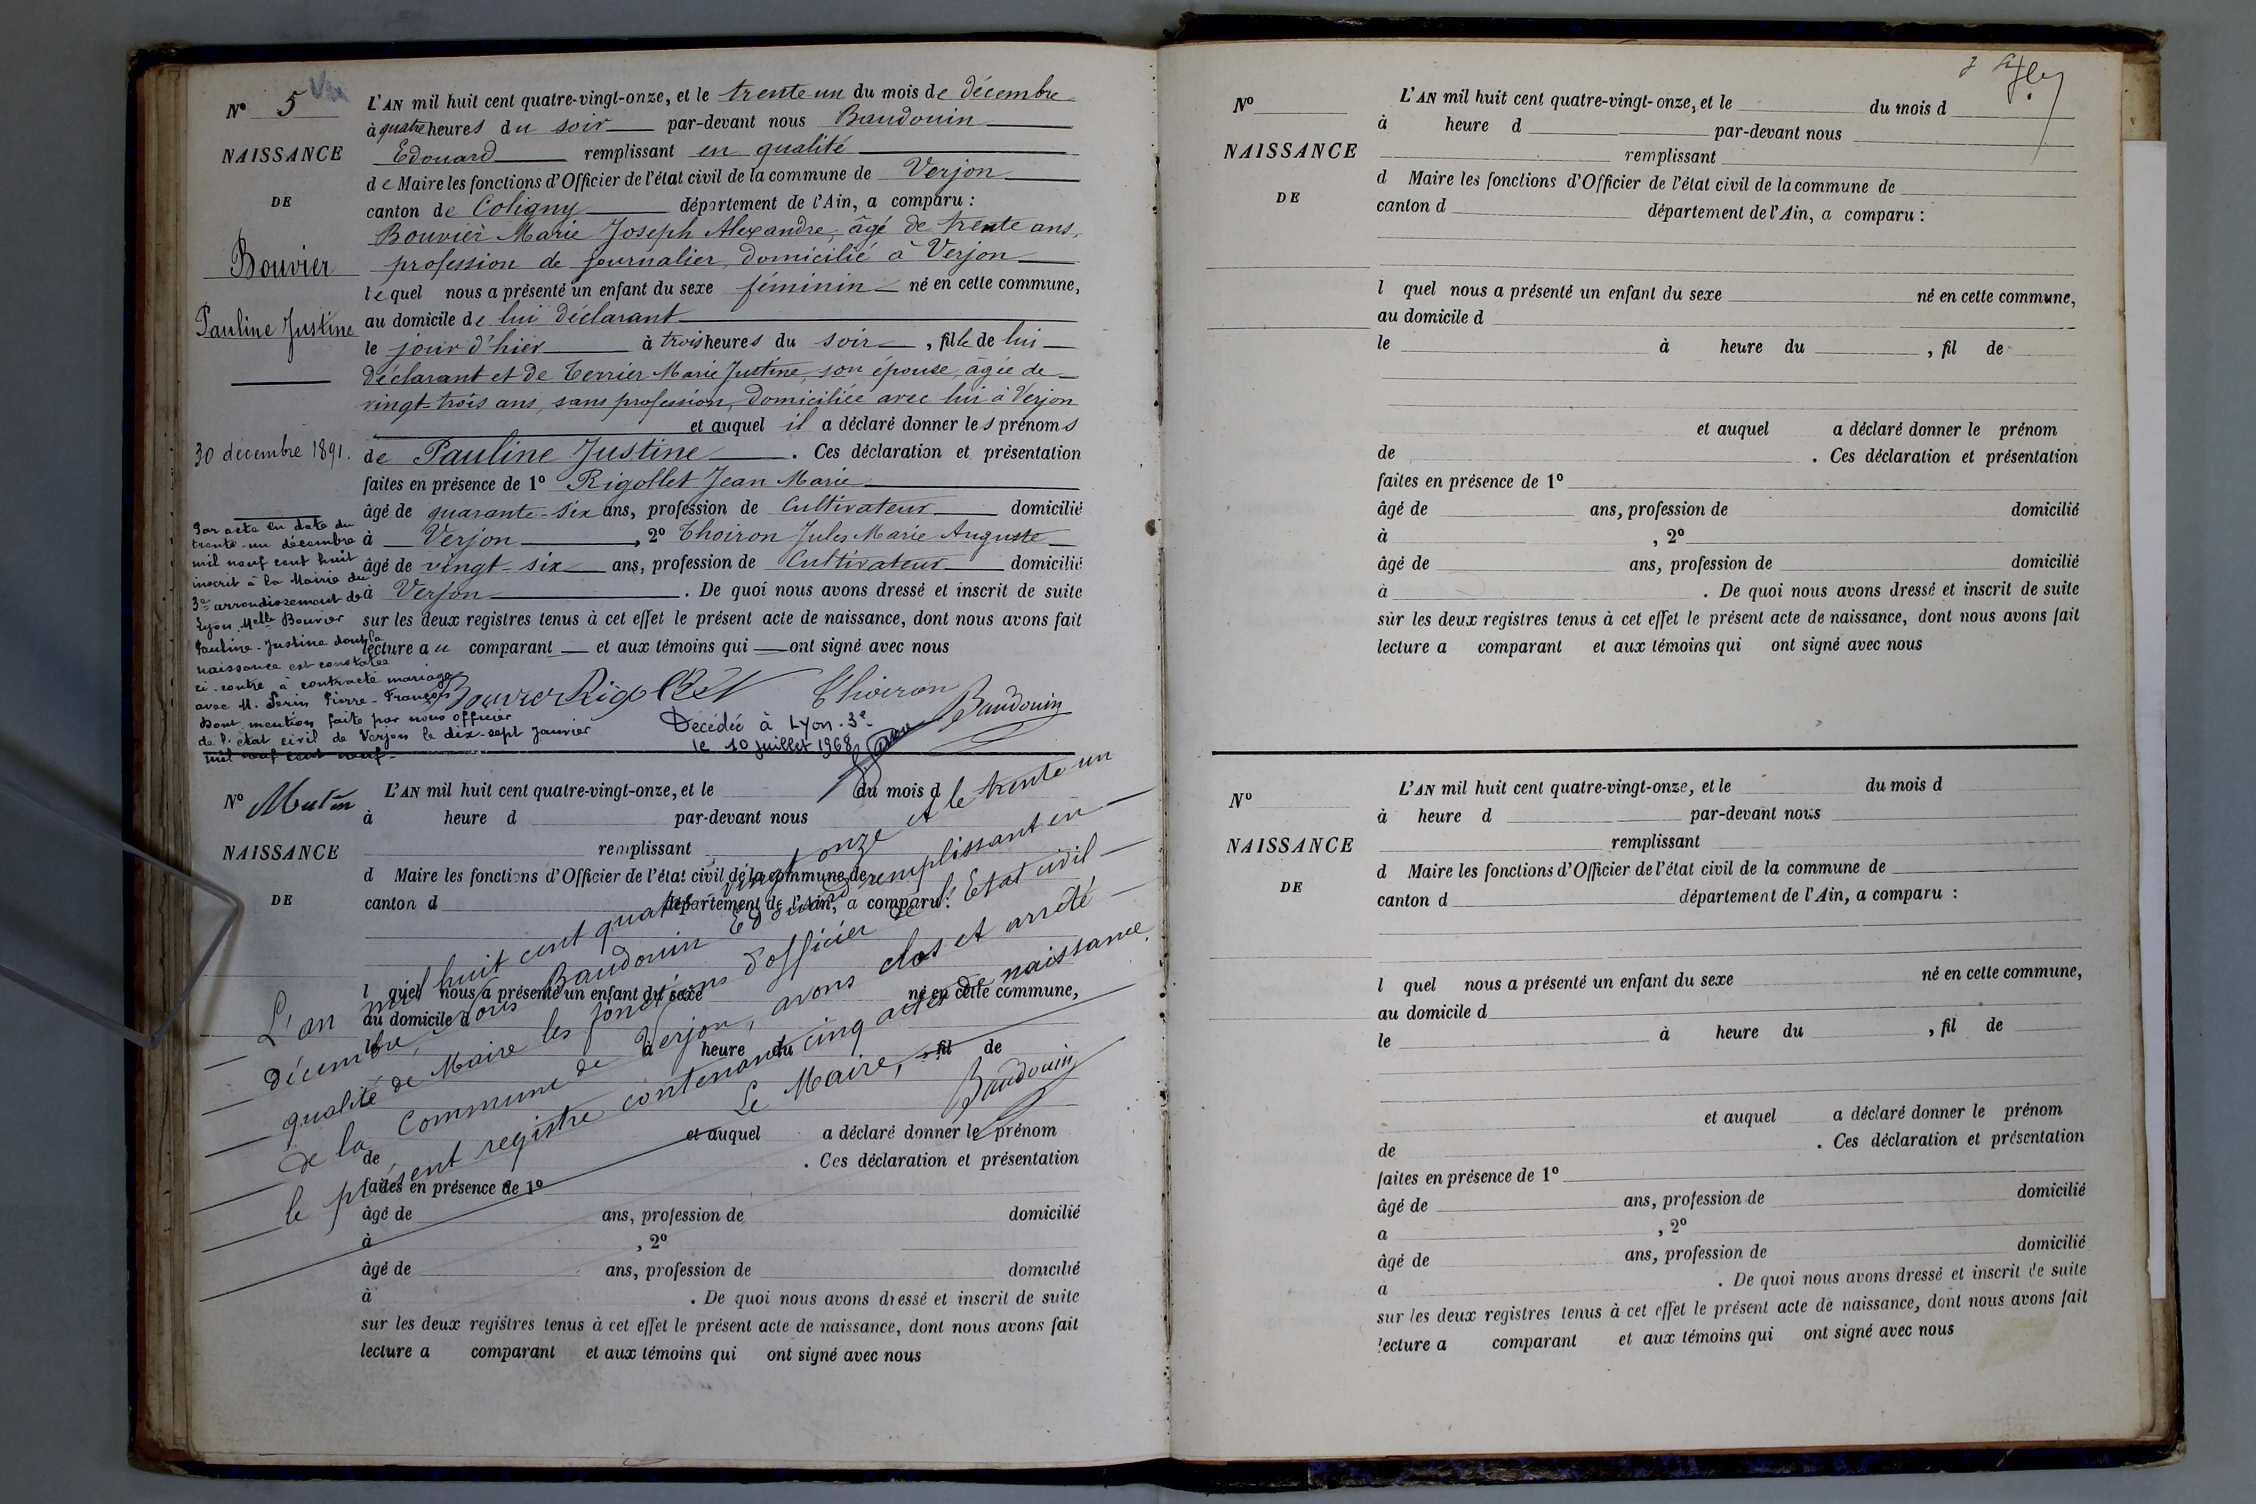 N° 5 Vu
NAISSANCE
DE
Bouvier
Pauline Justine
30 décembre 1891.
Par acte en date du
trente-un décembre
mil neuf cent huit
inscrit à la Mairie du
3e arrondissement de
Lyon, Melle Bouvier
Pauline-Justine dont la
naissance est constatée
ci-contre à contracté mariage
avec M. Perin Pierre-François
Dont mention faite par nous officier
de l'état civil de Verjon le dix-sept Janvier
mil neuf cent neuf-
L'AN mil huit cent quatre-vingt-onze, et le trente un du mois de décembre
à quatre heures du soir par-devant nous Baudouin
Edouard remplissant en qualité
de Maire les fonctions d'Officier de l'état civil de la commune de Verjon
canton de Coligny département de l'Ain, a comparu :
Bouvier Marie Joseph Alexandre, âgé de trente ans,
profession de journalier, domicilié à Verjon
lequel nous a présenté un enfant du sexe féminin né en cette commune,
au domicile de lui déclarant
le jour d'hier à trois heures du soir , fille de lui
déclarant et de Terrier Marie Justine, son épouse, âgée de
vingt-trois ans, sans profession, domiciliée avec lui à Verjon
et auquel il a déclaré donner les prénoms
de Pauline Justine . Ces déclaration et présentation
faites en présence de 1° Rigollet Jean Marie
âgé de quarante-six ans, profession de Cultivateur domicilié
à Verjon , 2° Thoiron Jules Marie Auguste
âgé de vingt-six ans, profession de Cultivateur domicilié
à Verjon . De quoi nous avons dressé et inscrit de suite
sur les deux registres tenus à cet effet le présent acte de naissance, dont nous avons fait
lecture au comparant et aux témoins qui ont signé avec nous
Bouvier Rigollet Thoiron Baudouin
Décédée à Lyon. 3e
le 10 juillet 1968
N°
NAISSANCE
DE
L'AN mil huit cent quatre-vingt-onze, et le du mois d
à heure d par-devant nous
remplissant
d Maire les fonctions d'Officier de l'état civil de la commune de
canton d département de l'Ain, a comparu :
l quel nous a présenté un enfant du sexe né en cette commune,
au domicile d
le à heure du , fil de
et auquel a déclaré donner le prénom
de . Ces déclaration et présentation
faites en présence de 1°
âgé de ans, profession de domicilié
à , 2°
âgé de ans, profession de domicilié
à . De quoi nous avons dressé et inscrit de suite
sur les deux registres tenus à cet effet le présent acte de naissance, dont nous avons fait
lecture a comparant et aux témoins qui ont signé avec nous
L'an mil huit cent quatre vingt onze et le trente un
décembre, nous Baudouin Edouard remplissant en
qualité de Maire les fonctions d'officier de l'Etat civil
de la Commune de Verjon, avons clos et arrêté
le présent registre contenant cinq actes de naissance.
Le Maire,
Baudouin
N°
NAISSANCE
DE
L'AN mil huit cent quatre-vingt-onze, et le du mois d
à heure d par-devant nous
remplissant
d Maire les fonctions d'Officier de l'état civil de la commune de
canton d département de l'Ain, a comparu :
l quel nous a présenté un enfant du sexe né en cette commune,
au domicile d
le à heure du , fil de
et auquel a déclaré donner le prénom
de . Ces déclaration et présentation
faites en présence de 1°
âgé de ans, profession de domicilié
à , 2°
âgé de ans, profession de domicilié
à . De quoi nous avons dressé et inscrit de suite
sur les deux registres tenus à cet effet le présent acte de naissance, dont nous avons fait
lecture a comparant et aux témoins qui ont signé avec nous
N°
NAISSANCE
DE
L'AN mil huit cent quatre-vingt-onze, et le du mois d
à heure d par-devant nous
remplissant
d Maire les fonctions d'Officier de l'état civil de la commune de
canton d département de l'Ain, a comparu :
l quel nous a présenté un enfant du sexe né en cette commune,
au domicile d
le à heure du , fil de
et auquel a déclaré donner le prénom
de . Ces déclaration et présentation
faites en présence de 1°
âgé de ans, profession de domicilié
a , 2°
âgé de ans, profession de domicilié
à . De quoi nous avons dressé et inscrit de suite
sur les deux registres tenus à cet effet le présent acte de naissance, dont nous avons fait
lecture a comparant et aux témoins qui ont signé avec nous